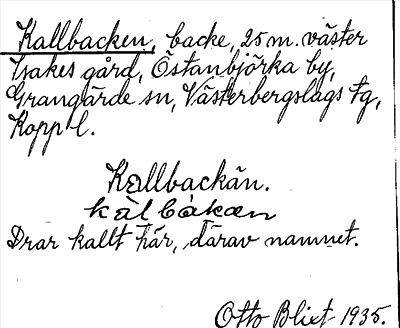 Kallbacken, backe, 25 m. väster
Isakes gård, Östanbjörka by,
Grangärde sn, Västerbergslags tg,
Kopp l.
Kallbackän.
kàlbàkæn
Drar kallt här, därav namnet.
Otto Blixt 1935.